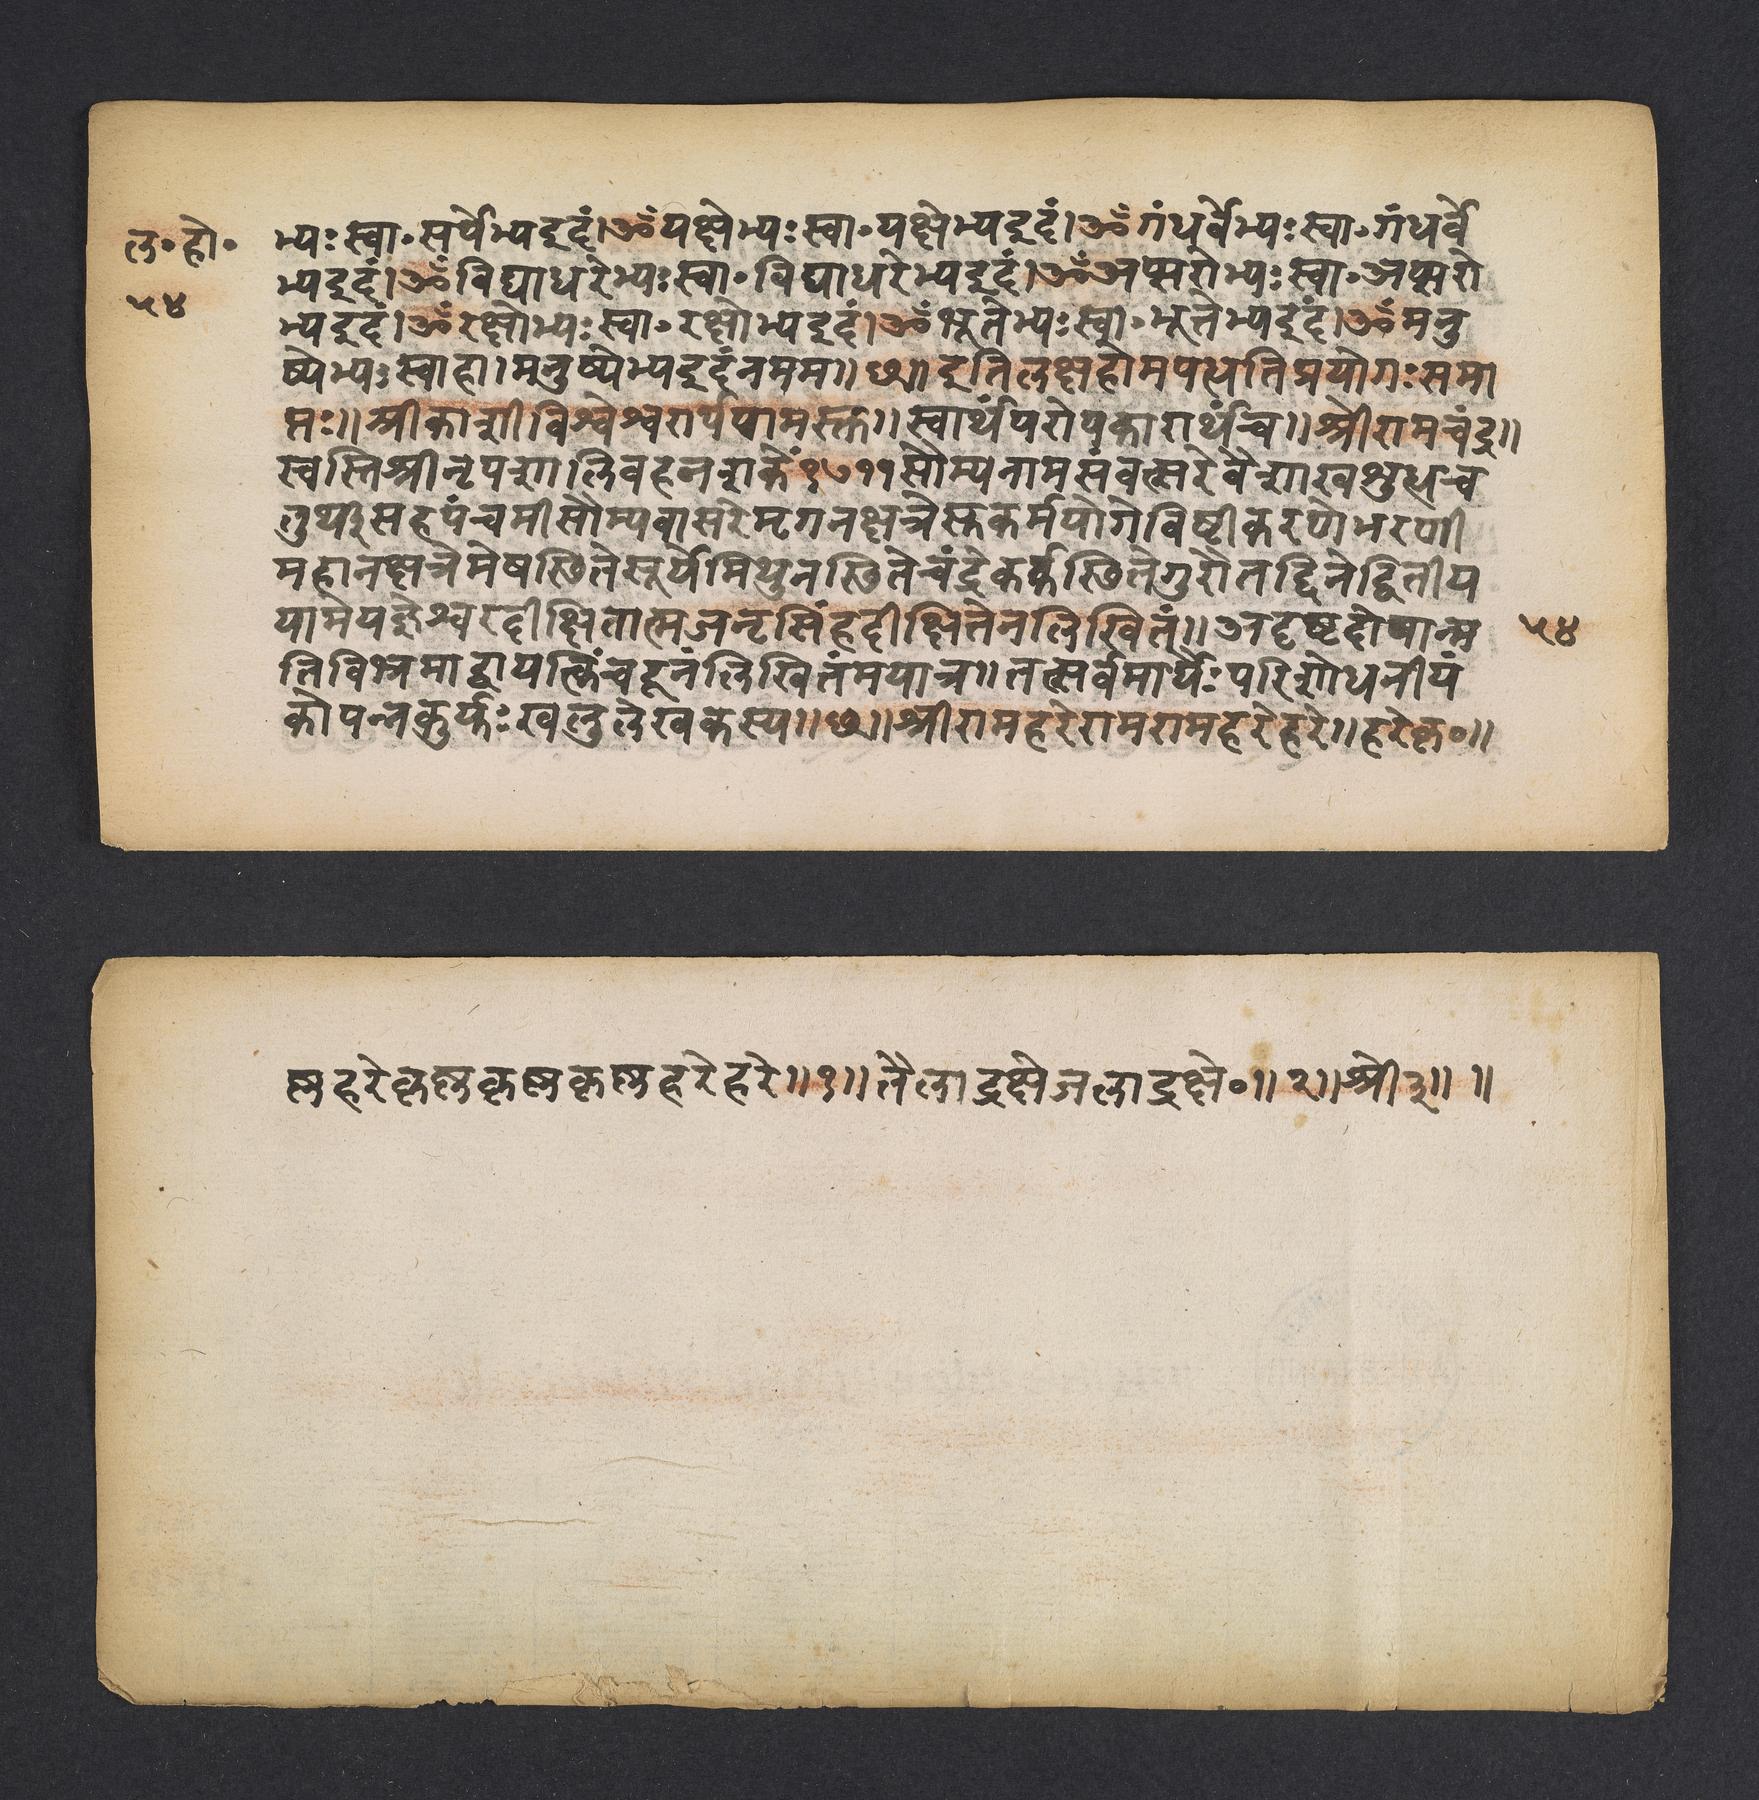 ल॰हो॰
५४
भ्यः स्वा॰ सर्पेभ्य इदं। ॐ यक्षेभ्यः स्वा॰ यक्षेभ्य इदं। ॐ गंधर्वेभ्यः स्वा॰ गंधर्वे
भ्य इदं। ॐ विद्याधरेभ्यः स्वा॰ विद्याधरेभ्य इदं। ॐ अप्सरोभ्यः स्वा॰ अप्सरो
भ्य इदं। ॐ रक्षोभ्यः स्वा॰ रक्षोभ्य इदं। ॐ भूतेभ्यः स्वा॰ भूतेभ्य इदं। ॐ मनु
ष्येभ्यः स्वाहा। मनुष्येभ्य इदं न मम॥ छ॥ इति लक्षहोमपद्धतिप्रयोगः समा
प्तः॥ श्रीकाशीविश्वेश्वरार्पणमस्तु॥ स्वार्थं परोपकारार्थं च॥ श्रीरामचंद्र॥
स्वस्ति श्रीनृपशालिवहनशके १७११ सौम्यनामसंवत्सरे वैशाखशुद्धच
तुर्थी सह पंचमी सौम्यवासरे मृगनक्षत्रे सुकर्मयोगे विष्टीकरणे भरणी
महानक्षत्रे मेषस्थिते सूर्ये मिथुनस्थिते चंद्रे कर्कस्थिते गुरौ तद्दिने द्वितीय
यामे यज्ञेश्वरदीक्षितात्मजनृसिंहदीक्षितेन लिखितं॥ अदृष्टदोषान्म
५४
तिविभ्रमाद्वा यत्किंचदूनं लिखितं मयात्र॥ तत्सर्वमार्यैः परिशोधनीयं
कोपन्न कुर्य्युः खलु लेखकस्य॥ छ॥ श्रीराम हरे राम राम हरे हरे॥ हरे कृ॰॥
ष्ण हरे कृष्ण कृष्ण कृष्ण हरे हरे॥१॥ तैलाद्रक्षे जलाद्रक्षे॰॥२॥ श्री ३॥ ॥